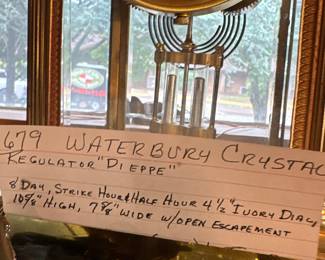 679 WATERBURY CRYSTAL
REGULATOR "DIEPPE"
8 DAY, STRIKE HOUR & HALF HOUR 4 1/2" IVORY DIAL,
10 5/8" HIGH, 7 7/8" WIDE W/OPEN ESCAPEMENT